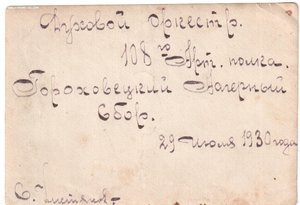 Духовой оркестр.
108 го Арт. полка.
Гороховецкий Лагерный
Сбор.
29 Июля 1930 года
С.